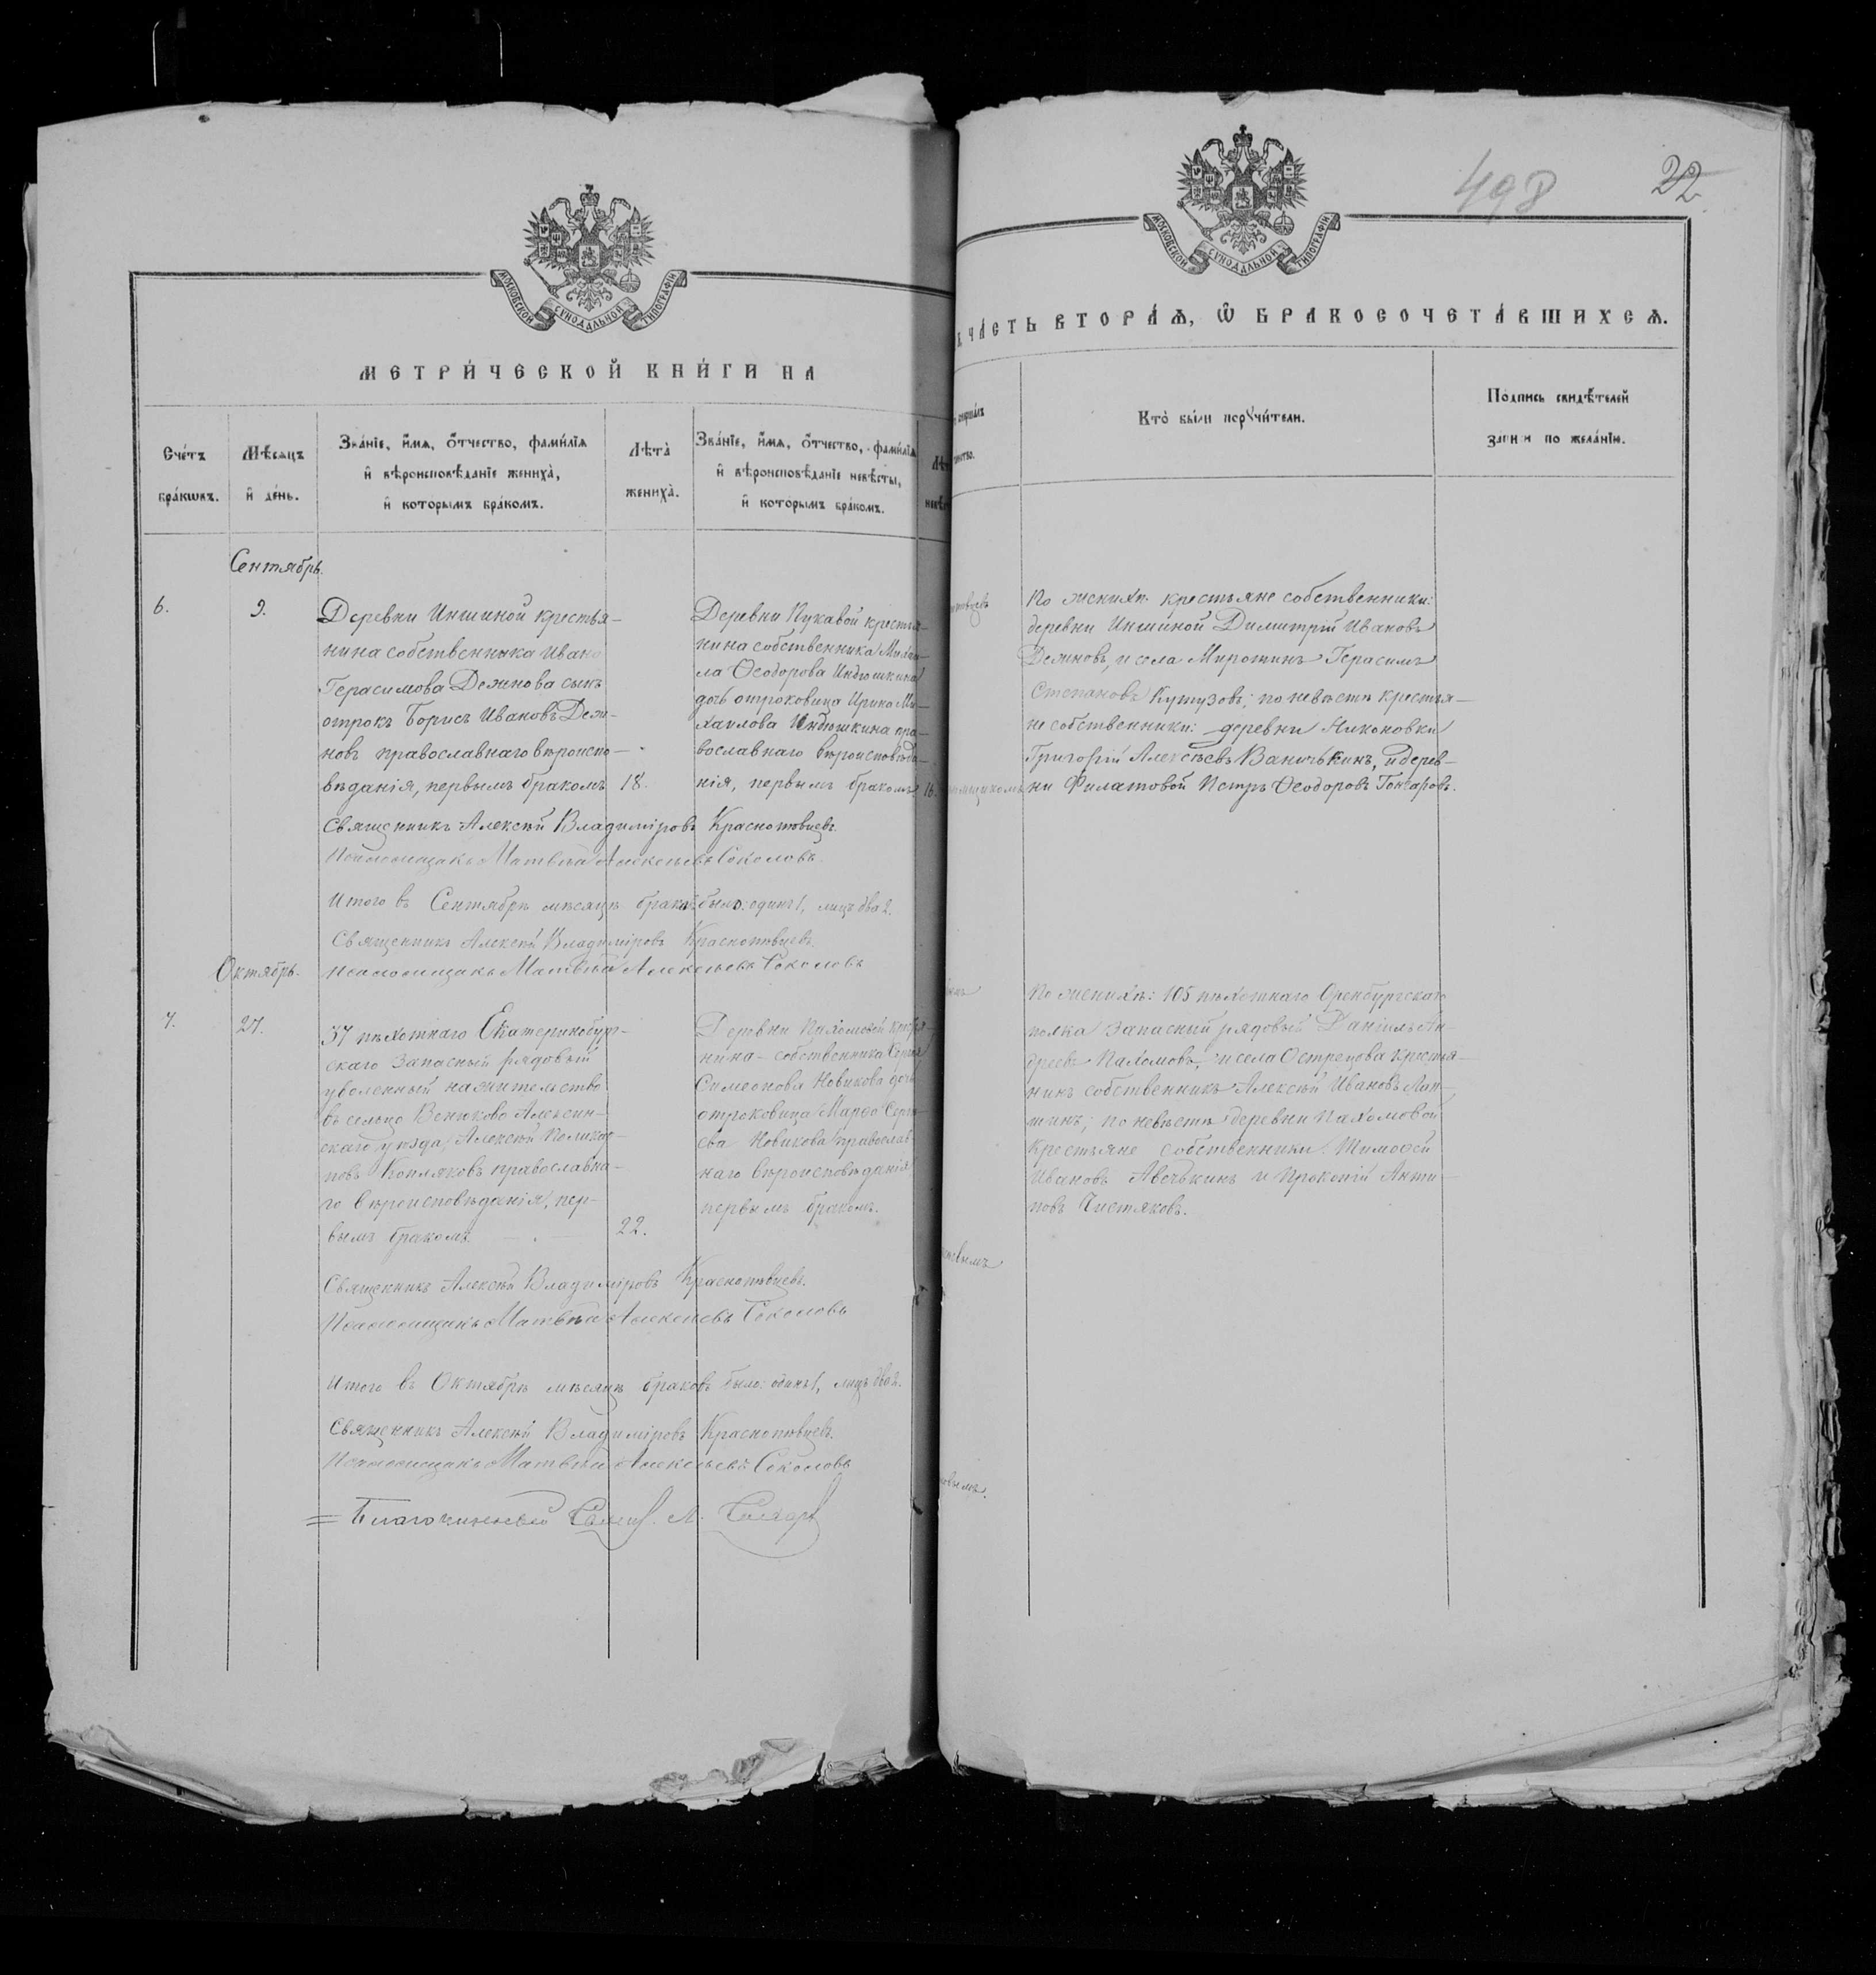 МОСКОВСКОЙ СѴНОДАЛЬНОЙ ТИПОГРАФІИ
МЕТРИ́ЧЕСКОЙ КНИ́ГИ НА
Сче́тъ бра́кωвъ.
Мѣ́сяцъ и҆ де́нь.
Зва́нїе, и҆́мѧ, ѻ҆́тчество, фами́лїѧ
и҆ вѣроисповѣ́данїе жениха̀,
и҆ которымъ бра́комъ.
Лѣ́та̀
жениха̀.
Зва́нїе, и҆́мѧ, ѻ҆́тчество, фами́лїѧ
и҆ вѣроисповѣ́данїе невѣ́сты,
и҆ которымъ бра́комъ.
Сентябрь.
6.
9.
Деревни Иншиной крестья-
нина собственника Ивана
Герасимова Деминова сынъ
отрокъ Борисъ Ивановъ Деми-
новъ православнаго вѣроиспо-
вѣданія, первымъ бракомъ
18.
Деревни Пукавой крестья-
нина собственника Михаи-
ла Ѳеодорова Индюшкина
дочь отроковица Ирина Ми-
хаилова Индюшкина пра-
вославнаго вѣроисповѣда-
нія, первымъ бракомъ.
16.
Священникъ Алексѣй Владиміровъ Краснопѣвцевъ.
Псаломщикъ Матвѣй Алексѣевъ Соколовъ.
Итого въ Сентябрѣ мѣсяцѣ браковъ было: одинъ 1, лицъ два 2.
Священникъ Алексѣй Владиміровъ Краснопѣвцевъ.
Псаломщикъ Матвѣй Алексѣевъ Соколовъ
Октябрь.
7.
27.
37 пѣхотнаго Екатеринбург-
скаго запасный рядовый
уволенный на жительство
въ сельцо Венюково Алексин-
скаго уѣзда, Алексѣй Поликар-
повъ Копляковъ православна-
го вѣроисповѣданія, пер-
вымъ бракомъ
22.
Деревни Пахомовой крестья-
нина-собственника Сергія
Симеонова Новикова дочь
отроковица Марѳа Сергѣ-
ева Новикова православ-
наго вѣроисповѣданія
первымъ бракомъ.
Священникъ Алексѣй Владиміровъ Краснопѣвцевъ.
Псаломщикъ Матвѣй Алексѣевъ Соколовъ
Итого въ Октябрѣ мѣсяцѣ браковъ было: одинъ 1, лицъ два 2.
Священникъ Алексѣй Владиміровъ Краснопѣвцевъ.
Псаломщикъ Матвѣй Алексѣевъ Соколовъ
Благочинный
498
22
МОСКОВСКОЙ СѴНОДАЛЬНОЙ ТИПОГРАФІИ
ЧА́СТЬ ВТОРА́Ѧ, Ѽ БРАКОСОЧЕТА́ВШИХСѦ.
Кто̀ бы́ли порꙋчи́тели.
По́дпись свидѣ́телей
за́писи по жела́нїю.
По женихѣ крестьяне собственники:
деревни Иншиной Димитрій Ивановъ
Деминовъ, и села Миротинъ Герасимъ
Степановъ Кутузовъ; по невѣстѣ крестья-
не собственники: деревни Никоновки
Григорій Алексѣевъ Ваничькинъ, и дерев-
ни Филатовой Петръ Ѳеодоровъ Гончаровъ.
По женихѣ: 105 пѣхотнаго Оренбургскаго
полка запасный рядовый Даніилъ Ан-
дреевъ Пахомовъ, и села Острецова крестья-
нинъ собственникъ Алексѣй Ивановъ Лап-
шинъ; по невѣстѣ деревни Пахомовой
крестьяне собственники: Тимоѳей
Ивановъ Авечькинъ и Прокопій Анти-
повъ Чистяковъ.